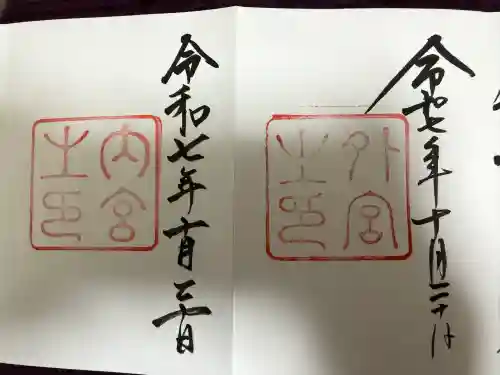 令和七年十月三十日
外宮
之印
令和七年十月三十日
内宮
之印